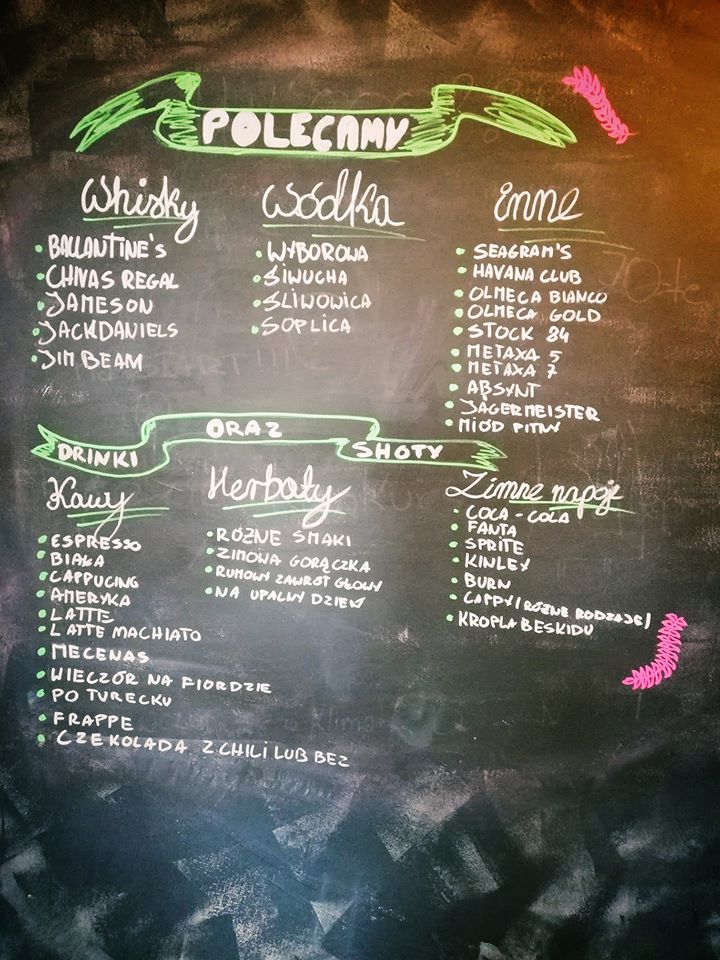 POLECAMY
Whisky
BALLANTINE'S
CHIVAS REGAL
JAMESON
JACKDANIELS
JIM BEAM
Wódka
WYBOROWA
SIWUCHA
ŚLIWOWICA
SOPLICA
inne
SEAGRAM'S
HAVANA CLUB
OLMECA BIANCO
OLMECA GOLD
STOCK 84
METAXA 5
METAXA 7
ABSYNT
JÄGERMEISTER
MIÓD PITNY
DRINKI ORAZ SHOTY
Kawy
ESPRESSO
BIAŁA
CAPPUCINO
AMERYKA
LATTE
LATTE MACHIATO
MECENAS
WIECZÓR NA FIORDZIE
PO TURECKU
FRAPPE
CZEKOLADA Z CHILI LUB BEZ
Herbaty
RÓŻNE SMAKI
ZIMOWA GORĄCZKA
RUMOWY ZAWRÓT GŁOWY
NA UPALNY DZIEŃ
Zimne napoje
COCA-COLA
FANTA
SPRITE
KINLEY
BURN
CAPPY (RÓŻNE RODZAJE)
KROPLA BESKIDU